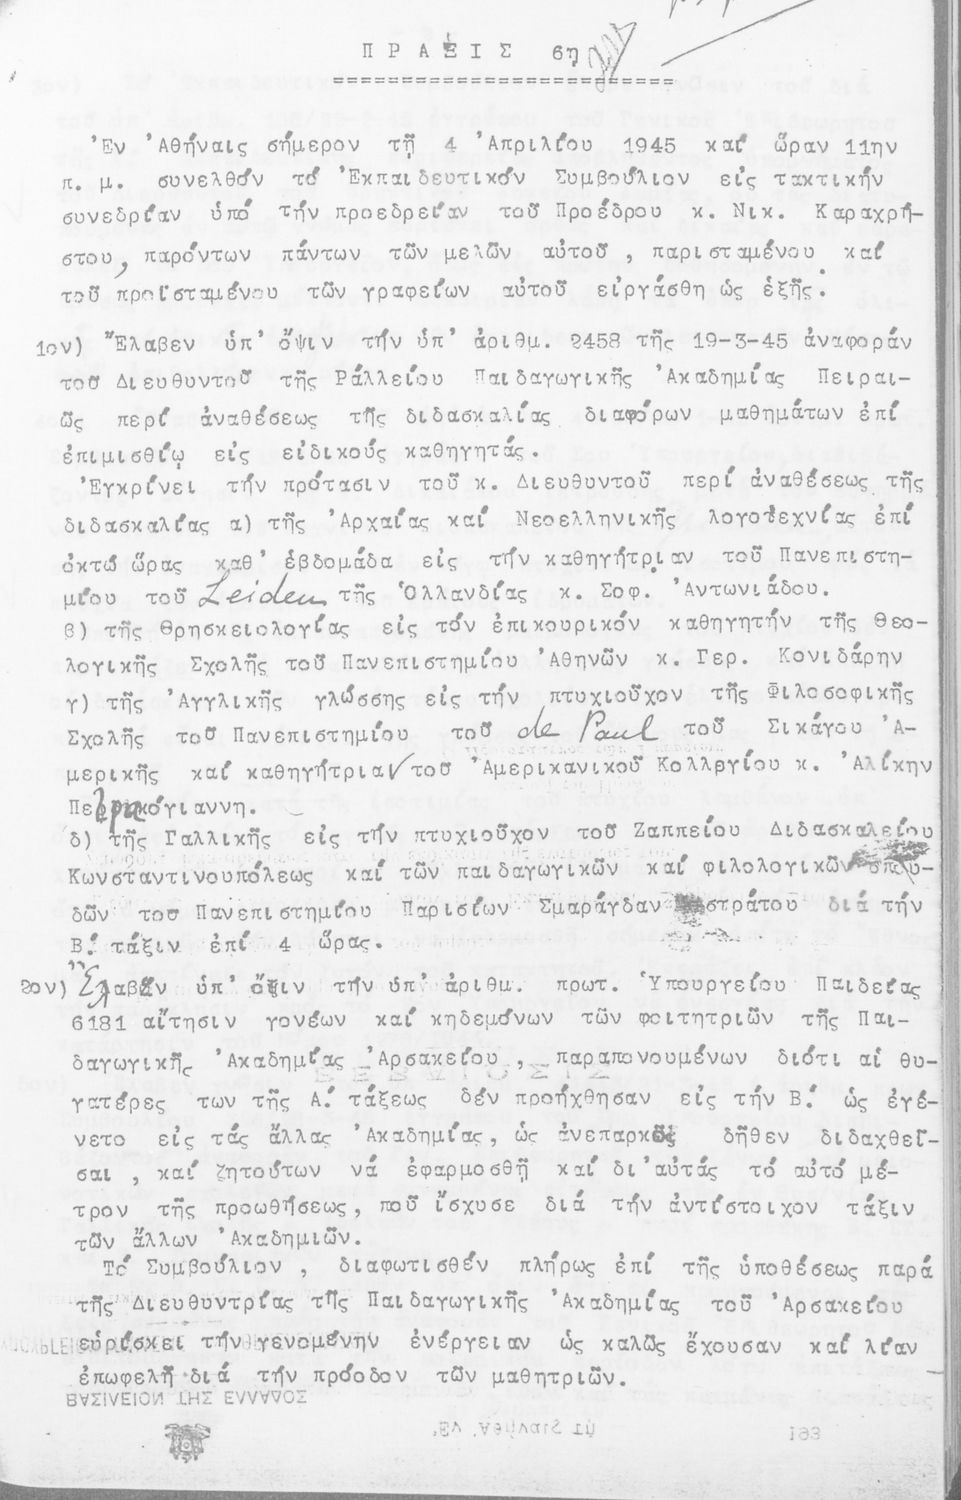 ΠΡΑΞΙΣ 6η
Ἐν Ἀθήναις σήμερον τῇ 4 Ἀπριλίου 1945 καί ὥραν 11ην
π. μ. συνελθόν τό Ἐκπαιδευτικόν Συμβούλιον εἰς τακτικήν
συνεδρίαν ὑπό τήν προεδρείαν τοῦ Προέδρου κ. Νικ. Καραχρή-
στου, παρόντων πάντων τῶν μελῶν αὐτοῦ, παρισταμένου καί
τοῦ προϊσταμένου τῶν γραφείων αὐτοῦ εἰργάσθη ὡς ἑξῆς.
1ον) Ἔλαβεν ὑπ' ὄψιν τήν ὑπ' ἀριθμ. 2458 τῆς 19-3-45 ἀναφοράν
τοῦ Διευθυντοῦ τῆς Ραλλείου Παιδαγωγικῆς Ἀκαδημίας Πειραι-
ῶς περί ἀναθέσεως τῆς διδασκαλίας διαφόρων μαθημάτων ἐπί
ἐπιμισθίῳ εἰς εἰδικούς καθηγητάς.
Ἐγκρίνει τήν πρότασιν τοῦ κ. Διευθυντοῦ περί ἀναθέσεως τῆς
διδασκαλίας α) τῆς Ἀρχαίας καί Νεοελληνικῆς λογοτεχνίας ἐπί
ὀκτώ ὥρας καθ' ἑβδομάδα εἰς τήν καθηγήτριαν τοῦ Πανεπιστη-
μίου τοῦ Leiden τῆς Ὁλλανδίας κ. Σοφ. Ἀντωνιάδου.
β) τῆς Θρησκειολογίας εἰς τόν ἐπικουρικόν καθηγητήν τῆς Θεο-
λογικῆς Σχολῆς τοῦ Πανεπιστημίου Ἀθηνῶν κ. Γερ. Κονιδάρην
γ) τῆς Ἀγγλικῆς γλώσσης εἰς τήν πτυχιοῦχον τῆς Φιλοσοφικῆς
Σχολῆς τοῦ Πανεπιστημίου τοῦ de Paul τοῦ Σικάγου Ἀ-
μερικῆς καί καθηγήτριαν τοῦ Ἀμερικανικοῦ Κολλεγίου κ. Ἀλίκην
Περρικόγιαννη.
δ) τῆς Γαλλικῆς εἰς τήν πτυχιοῦχον τοῦ Ζαππείου Διδασκαλείου
Κωνσταντινουπόλεως καί τῶν παιδαγωγικῶν καί φιλολογικῶν σπου-
δῶν τοῦ Πανεπιστημίου Παρισίων Σμαράγδαν διά τήν
Β΄. τάξιν ἐπί 4 ὥρας.
2ον) Ἔλαβεν ὑπ' ὄψιν τήν ὑπ' ἀριθμ. πρωτ. Ὑπουργείου Παιδείας
6181 αἴτησιν γονέων καί κηδεμόνων τῶν φοιτητριῶν τῆς Παι-
δαγωγικῆς Ἀκαδημίας Ἀρσακείου, παραπονουμένων διότι αἱ θυ-
γατέρες των τῆς Α΄. τάξεως δέν προήχθησαν εἰς τήν Β΄. ὡς ἐγέ-
νετο εἰς τάς ἄλλας Ἀκαδημίας, ὡς ἀνεπαρκῶς δῆθεν διδαχθεῖ-
σαι, καί ζητούτων νά ἐφαρμοσθῇ καί δι' αὐτάς τό αὐτό μέ-
τρον τῆς προωθήσεως, πού ἴσχυσε διά τήν ἀντίστοιχον τάξιν
τῶν ἄλλων Ἀκαδημιῶν.
Τό Συμβούλιον, διαφωτισθέν πλήρως ἐπί τῆς ὑποθέσεως παρά
τῆς Διευθυντρίας τῆς Παιδαγωγικῆς Ἀκαδημίας τοῦ Ἀρσακείου
εὑρίσκει τήν γενομένην ἐνέργειαν ὡς καλῶς ἔχουσαν καί λίαν
ἐπωφελῆ διά τήν πρόοδον τῶν μαθητριῶν.
ΒΑΣΙΛΕΙΟΝ ΤΗΣ ΕΛΛΑΔΟΣ